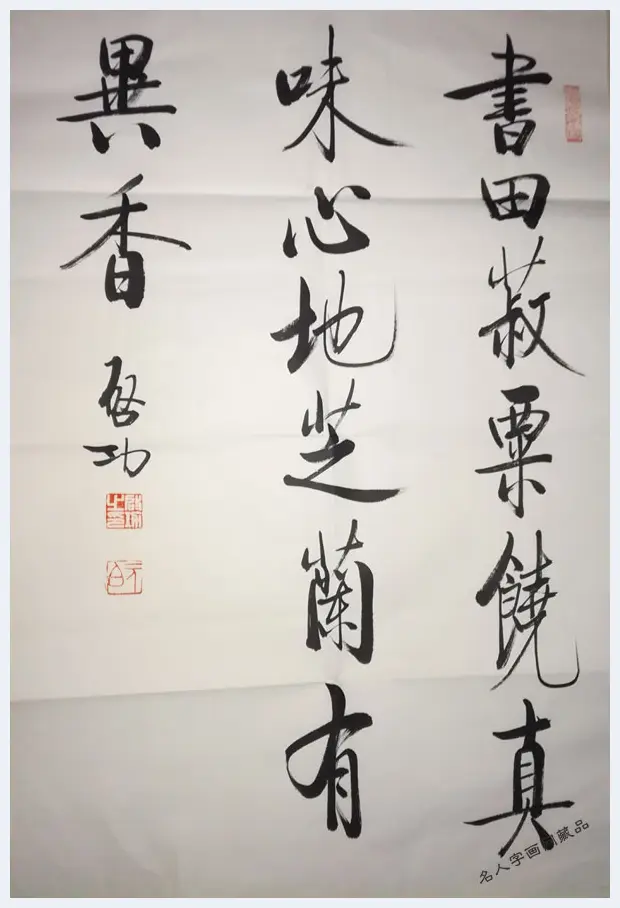 書田菽粟饒真
味心地芝蘭有
異香
啓功
名人字画 藏品